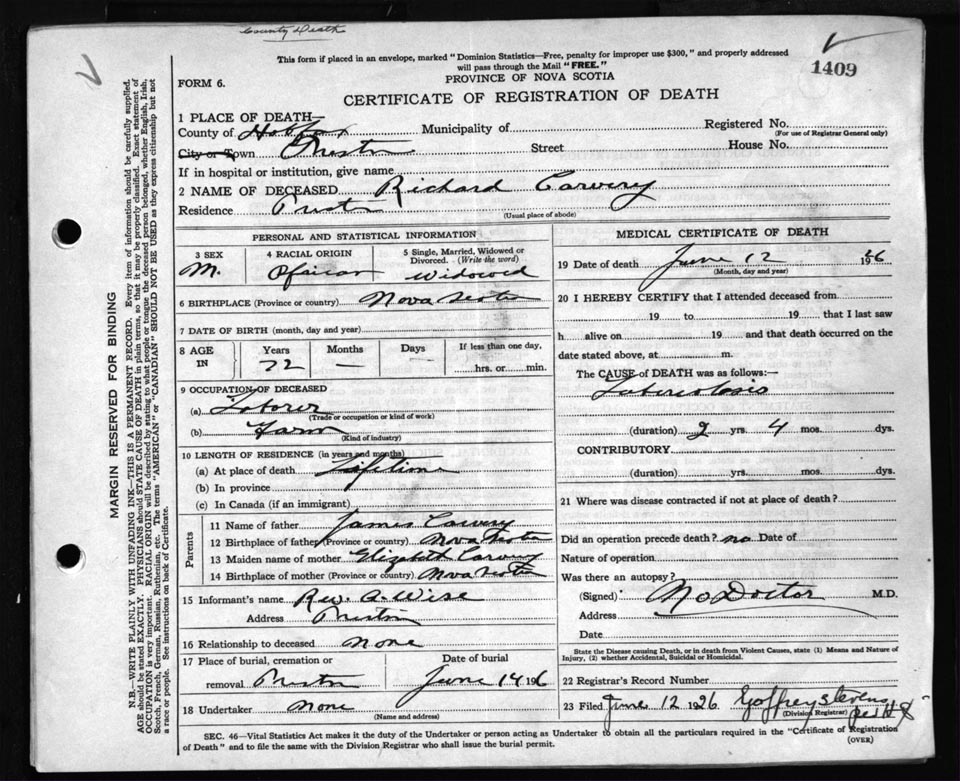 County Death
This form if placed in an envelope, marked "Dominion Statistics—Free, penalty for improper use $300," and properly addressed
will pass through the Mail "FREE."
1409
FORM 6.
PROVINCE OF NOVA SCOTIA
CERTIFICATE OF REGISTRATION OF DEATH
1 PLACE OF DEATH
County of Halifax Municipality of Registered No.
(For use of Registrar General only)
City or Town Preston Street House No.
If in hospital or institution, give name
2 NAME OF DECEASED Richard Carvery
Residence Preston
(Usual place of abode)
PERSONAL AND STATISTICAL INFORMATION
3 SEX 4 RACIAL ORIGIN 5 Single, Married, Widowed or
Divorced. (Write the word)
M. Widowed
6 BIRTHPLACE (Province or country) Nova Scotia
7 DATE OF BIRTH (month, day and year)
8 AGE IN Years Months Days If less than one day,
72 — hrs. or min.
9 OCCUPATION OF DECEASED
(a) Laborer
(Trade or occupation or kind of work)
(b) Farm
(Kind of industry)
10 LENGTH OF RESIDENCE (in years and months)
(a) At place of death Lifetime
(b) In province
(c) In Canada (if an immigrant)
Parents
11 Name of father James Carvery
12 Birthplace of father (Province or country) Nova Scotia
13 Maiden name of mother Elizabeth Carvery
14 Birthplace of mother (Province or country) Nova Scotia
15 Informant's name Rev. A. Wise
Address Preston
16 Relationship to deceased none
17 Place of burial, cremation or Date of burial
removal Preston June 14 1926
18 Undertaker none
(Name and address)
MEDICAL CERTIFICATE OF DEATH
19 Date of death June 12 1926
(Month, day and year)
20 I HEREBY CERTIFY that I attended deceased from
19 to 19 that I last saw
h alive on 19 and that death occurred on the
date stated above, at m.
The CAUSE of DEATH was as follows:—
Tuberculosis
(duration) 2 yrs. 4 mos. dys.
CONTRIBUTORY
(duration) yrs. mos. dys.
21 Where was disease contracted if not at place of death?
Did an operation precede death? no Date of
Nature of operation
Was there an autopsy?
(Signed) No Doctor M.D.
Address
Date
State the Disease causing Death, or in death from Violent Causes, state (1) Means and Nature of
Injury, (2) whether Accidental, Suicidal or Homicidal.
22 Registrar's Record Number
23 Filed June 12 1926 Geoffrey Stevens
(Division Registrar)
SEC. 46—Vital Statistics Act makes it the duty of the Undertaker or person acting as Undertaker to obtain all the particulars required in the "Certificate of Registration
of Death" and to file the same with the Division Registrar who shall issue the burial permit.
(OVER)
MARGIN RESERVED FOR BINDING
N.B.—WRITE PLAINLY WITH UNFADING INK—THIS IS A PERMANENT RECORD. Every item of information should be carefully supplied.
AGE should be stated EXACTLY. PHYSICIANS should STATE CAUSE OF DEATH in plain terms, so that it may be properly classified. Exact statement of
OCCUPATION is very important. RACIAL ORIGIN will be described by stating to what people or tongue the deceased person belonged, whether English, Irish,
Scotch, French, German, Russian, Ruthenian, etc. The terms "AMERICAN" or "CANADIAN" SHOULD NOT BE USED as they express citizenship but not
a race or people. See instructions on back of Certificate.